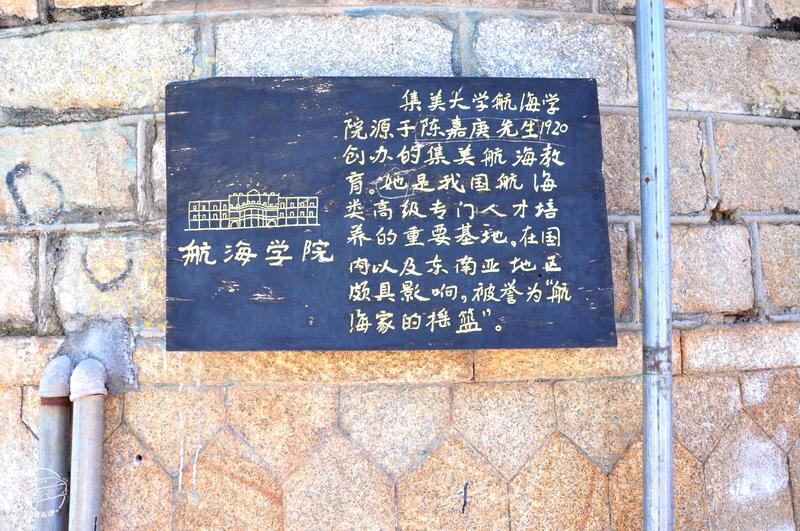 航海学院
集美大学航海学
院源于陈嘉庚先生1920
创办的集美航海教
育。她是我国航海
类高级专门人才培
养的重要基地。在国
内以及东南亚地区
颇具影响，被誉为“航
海家的摇篮”。